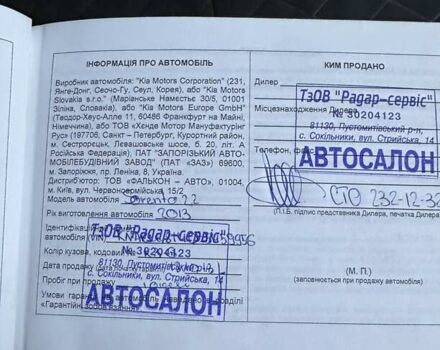 ІНФОРМАЦІЯ ПРО АВТОМОБІЛЬ
Виробник автомобіля: "Kia Motors Corporation" (231,
Янге-Донг, Сеочо-Гу, Сеул, Корея), або "Kia Motors
Slovakia s.r.o." (Маріанське Намєстіє 30/5, 01001
Зіліна, Словакія), або "Kia Motors Europe GmbH"
(Теодор-Хеус-Алле 11, 60486 Франкфурт на Майні,
Німеччина), або ТОВ «Хенде Мотор Мануфактурінг
Рус» (197706, Санкт – Петербург, Курортний район,
м. Сестрорецьк, Левашовське шосе, б. 20, літ. А
Російська Федерація), ПАТ "ЗАПОРІЗЬКИЙ АВТО-
МОБІЛЕБУДІВНИЙ ЗАВОД" (ПАТ «ЗАЗ») 69600,
м. Запоріжжя, пр. Леніна, 8, Україна.
Дистриб'ютор: ТОВ «ФАЛЬКОН – АВТО», 01004,
м. Київ, вул. Червоноармійська, 15/2
Модель автомобіля Sorento 2.2
Рік виготовлення автомобіля 2013
Ідентифікаці
автомобіля (VIN)
ТзОВ "Радар-сервіс"
Колір кузова, кодовий
№ 30204123
81130, Пустомитівський р-н,
с. Сокільники, вул. Стрийська, 14
Дата продажу
Пробіг при продажу
АВТОСАЛОН
Умови гарантії на автомобіль наведено в розділі
«Гарантійні зобов'язання»
КИМ ПРОДАНО
Дилер
ТзОВ "Радар-сервіс"
№ 30204123
Місцезнаходження Дилера
81130, Пустомитівський р-н,
с. Сокільники, вул. Стрийська, 14
Телефон, факс
АВТОСАЛОН
СТО 232-12-32
(П.І.Б. підпис представника Дилера, печатка Дилера)
(М. П.)
(заповнюється при продажу автомобіля)